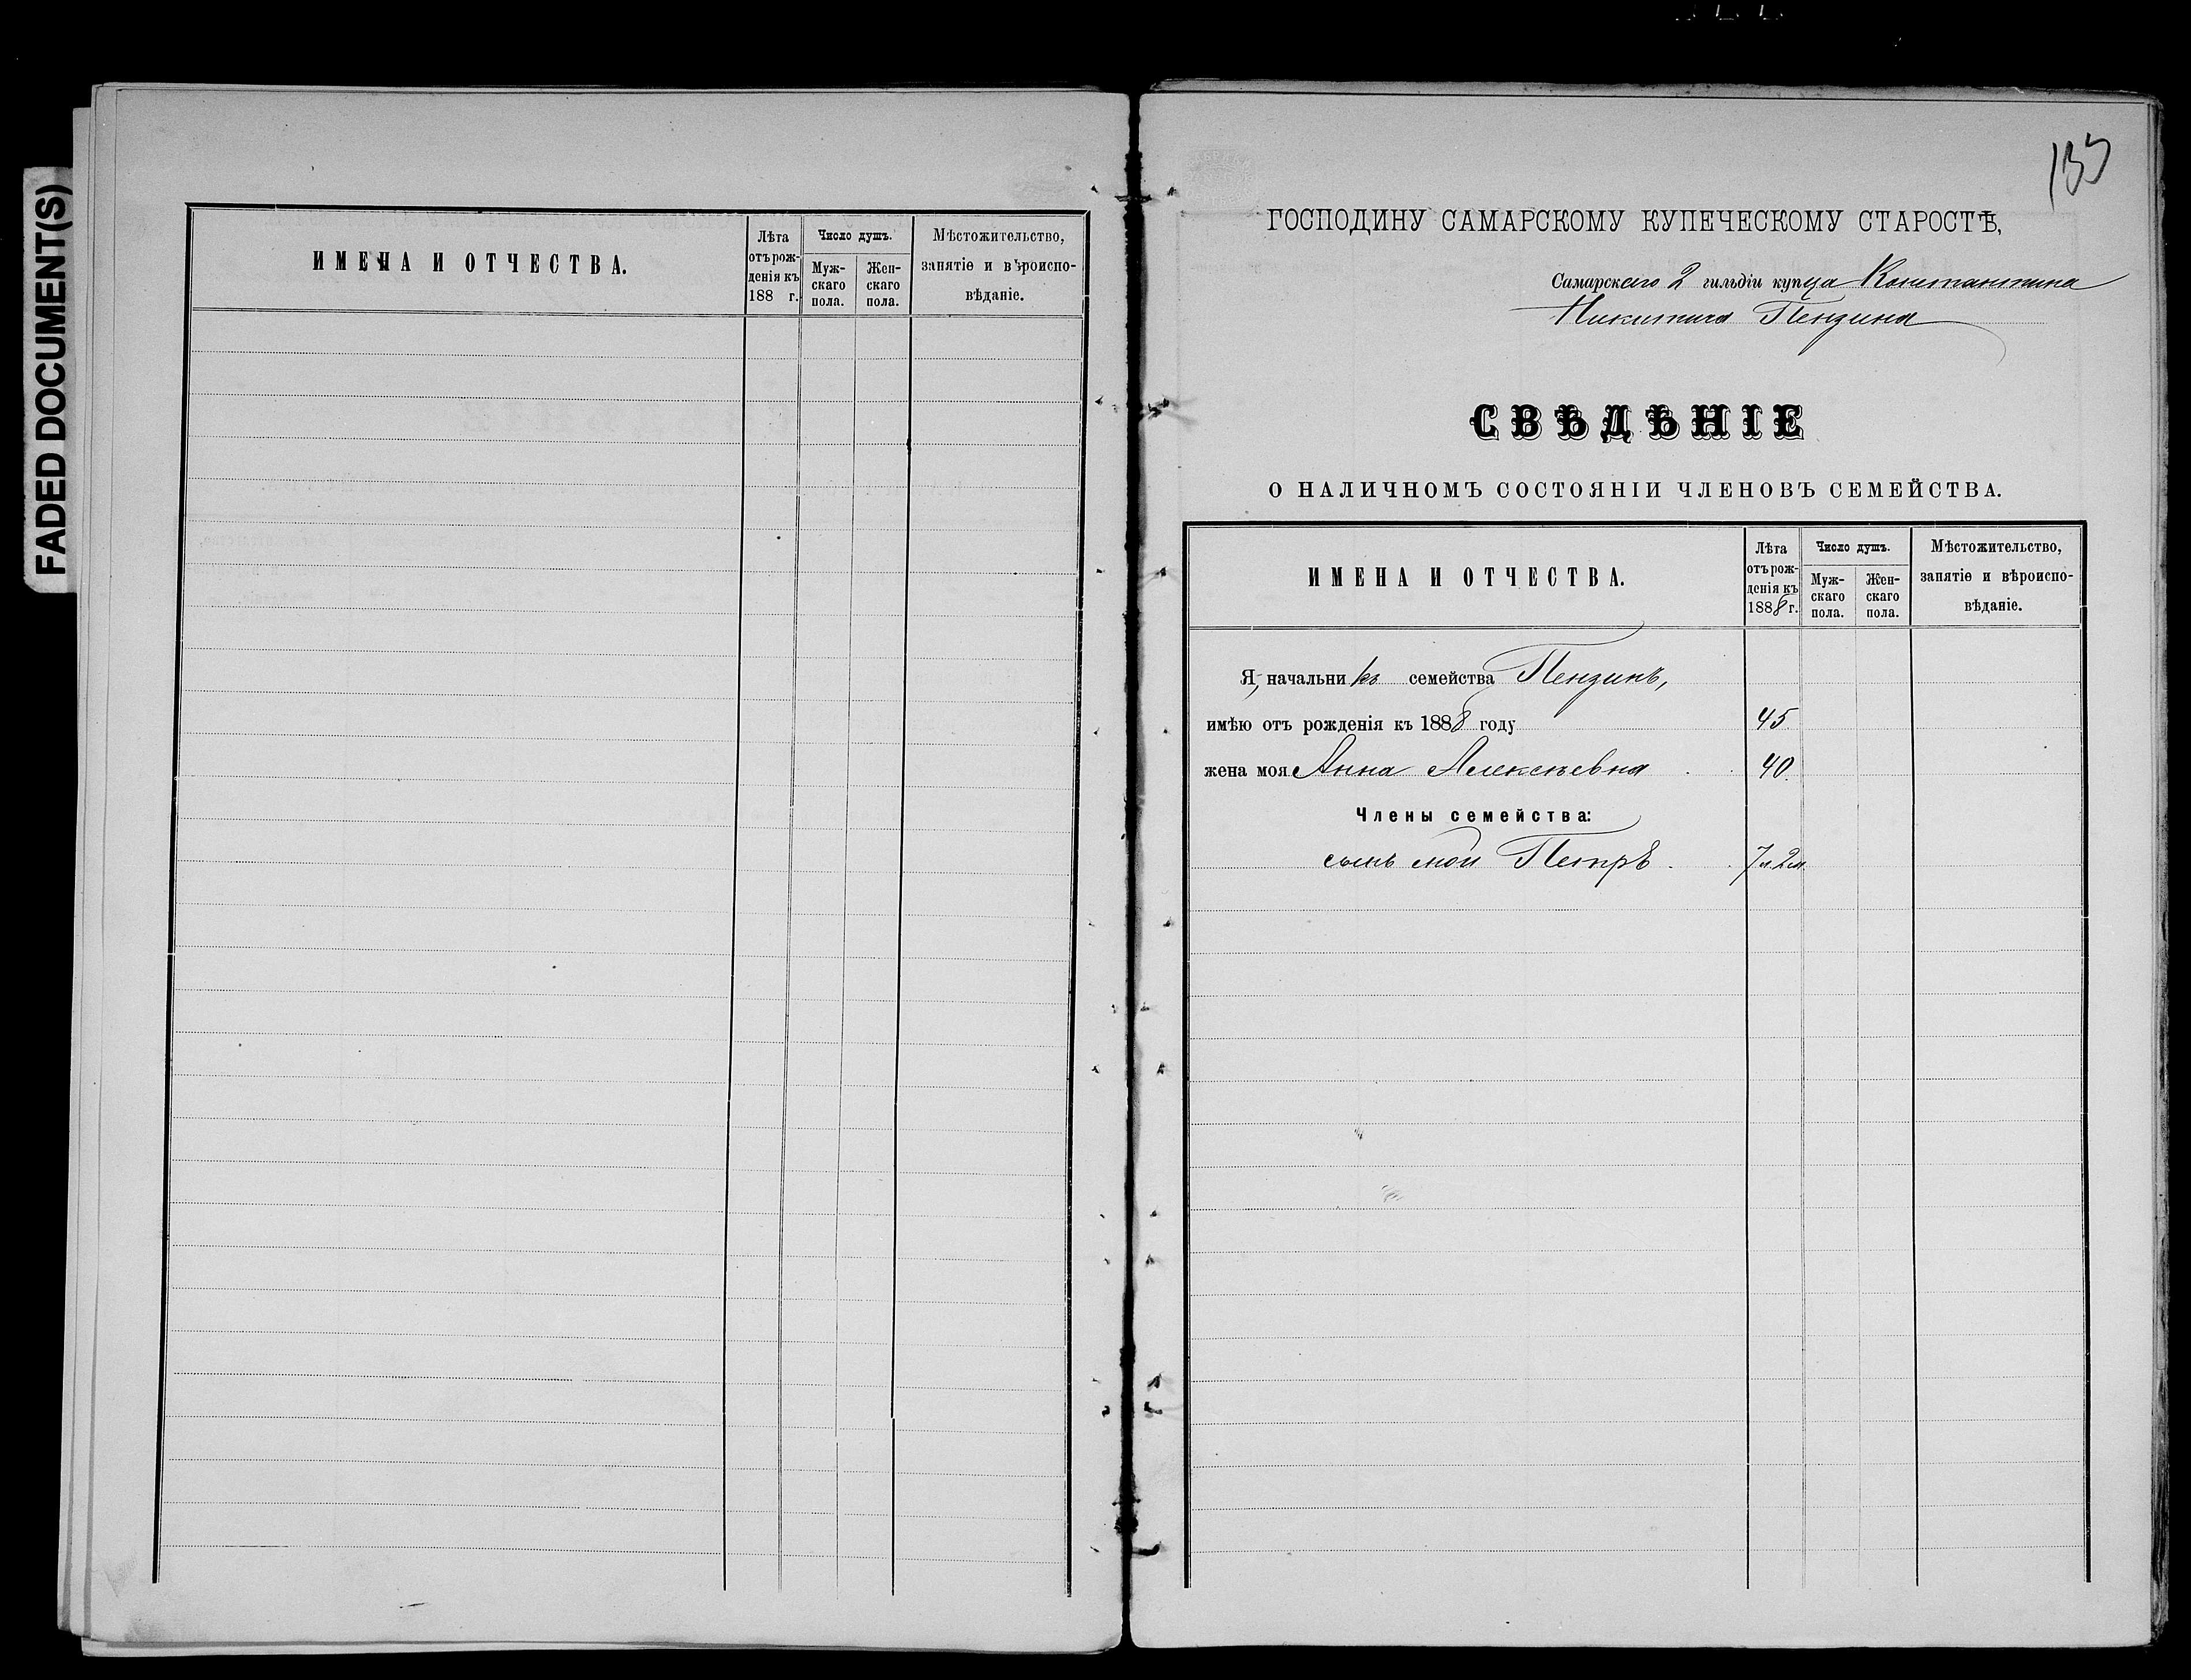 FADED DOCUMENT(S)
ИМЕНА И ОТЧЕСТВА.
Лѣта
отъ рож-
денія къ
188 г.
Число душъ.
Муж-
скаго
пола.
Жен-
скаго
пола.
Мѣстожительство,
занятіе и вѣроиспо-
вѣданіе.
133
ГОСПОДИНУ САМАРСКОМУ КУПЕЧЕСКОМУ СТАРОСТѢ,
Самарскаго 2 гильдіи купца Константина
Никитича Пензина
СВѢДѢНІЕ
О НАЛИЧНОМЪ СОСТОЯНІИ ЧЛЕНОВЪ СЕМЕЙСТВА.
ИМЕНА И ОТЧЕСТВА.
Лѣта
отъ рож-
денія къ
1888 г.
Число душъ.
Муж-
скаго
пола.
Жен-
скаго
пола.
Мѣстожительство,
занятіе и вѣроиспо-
вѣданіе.
Я, начальникъ семейства Пензинъ,
имѣю отъ рожденія къ 1888 году 45
жена моя Анна Алексѣевна 40.
Члены семейства:
сынъ мой Петръ 7 л. 2 м.